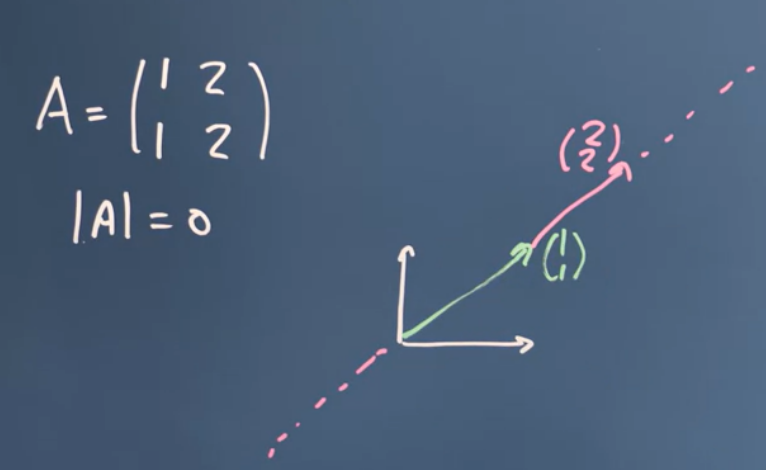 A = (1 2
1 2)
|A| = 0
(2
2)
(1
1)